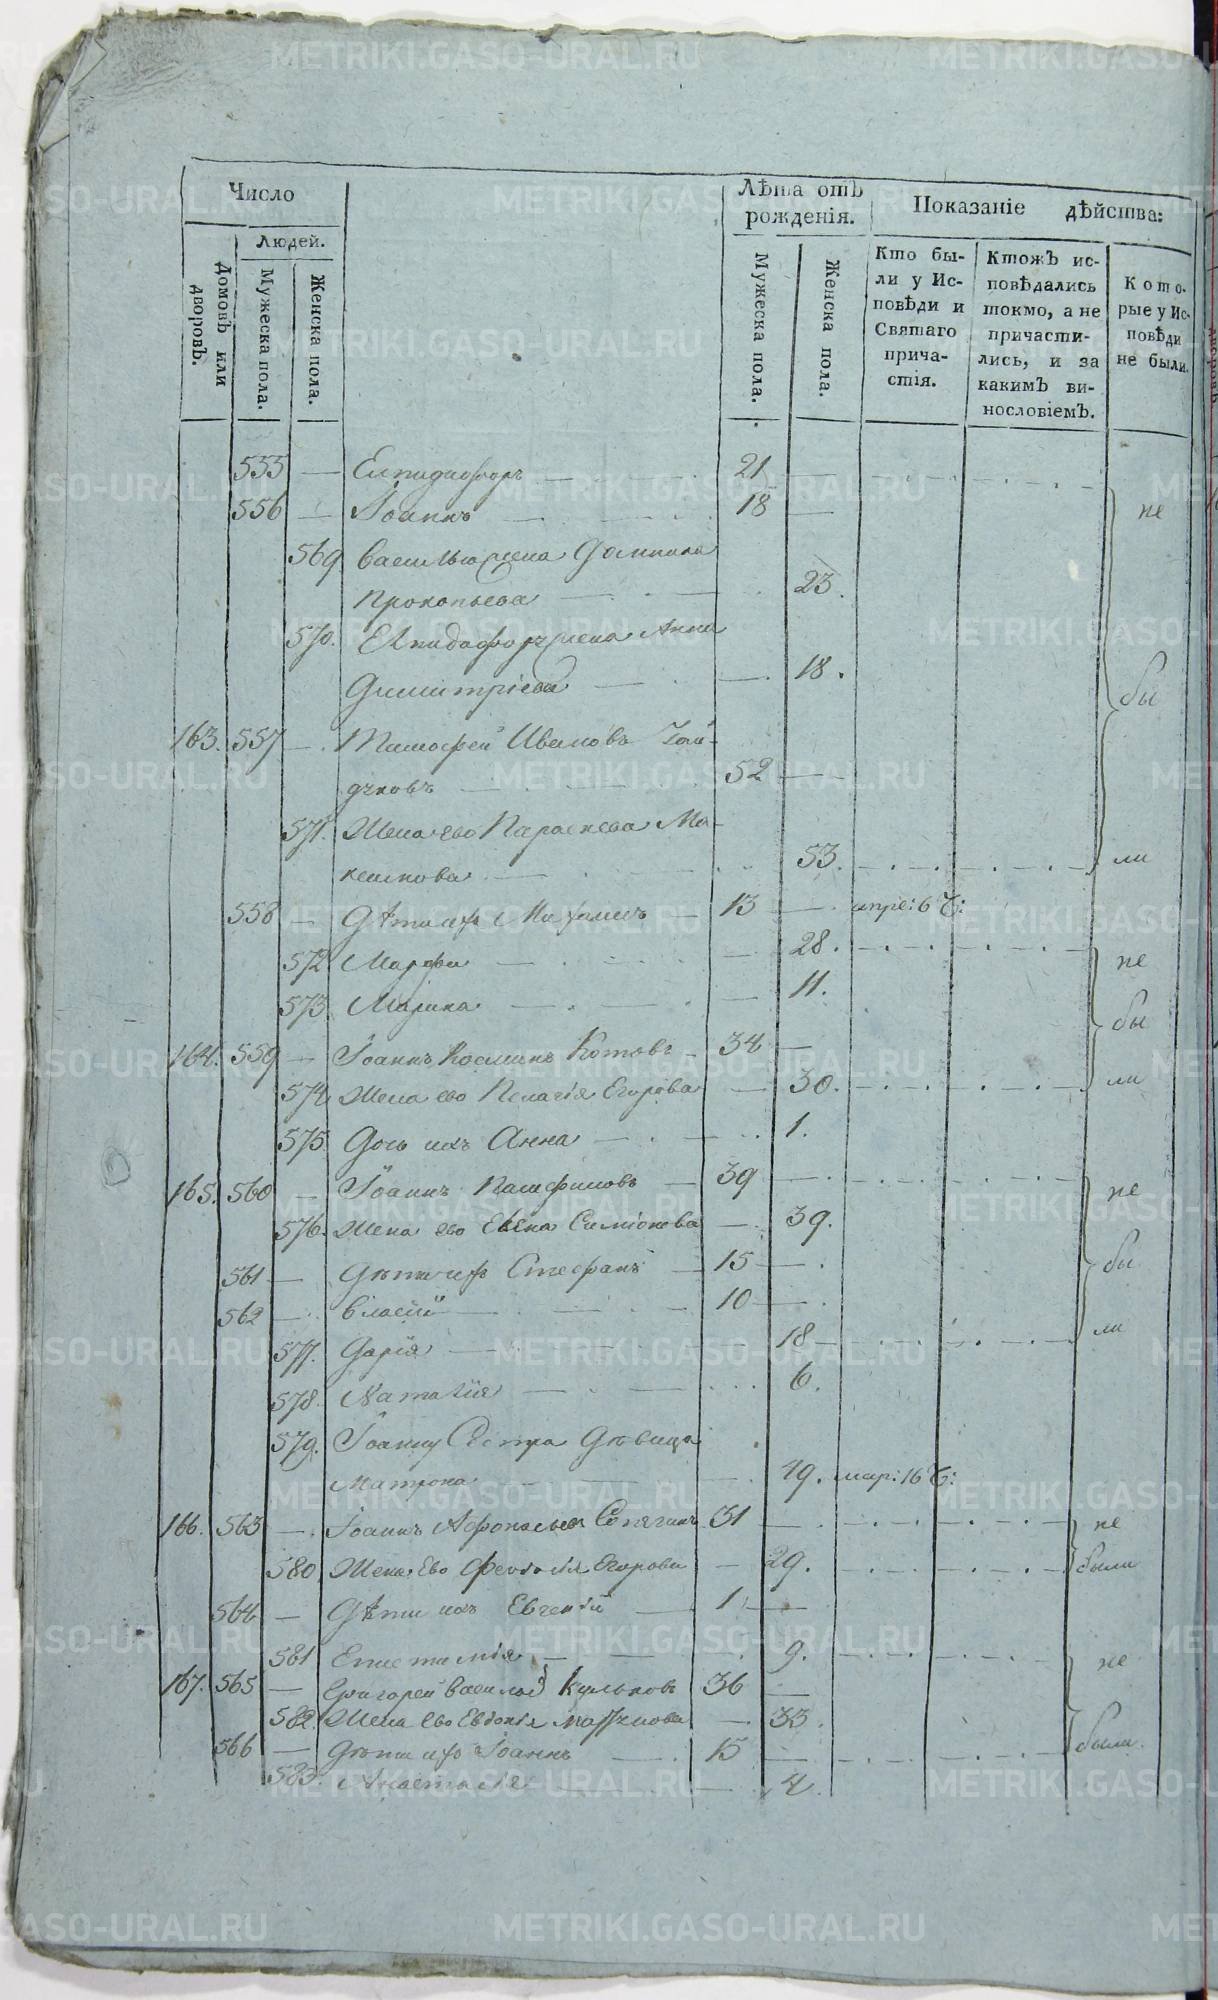 Число
Лѣта отъ рожденія.
Показаніе дѣйства:
Людей.
Домовъ или дворовъ.
Мужеска пола.
Женска пола.
Мужеска пола.
Женска пола.
Кто были у Исповѣди и Святаго причастія.
Ктожъ исповѣдались токмо, а не причастились, и за какимъ винословіемъ.
Которые у Исповѣди не были.
555 — Елпидифоръ — 21 —
556 — Іоаннъ — 18 — не
569 Васильа жена Домника
Прокопьева — 23.
570. Елпидифоръ жена Анна
Димитріева — 18. бы
163. 557 — Тимофей Ивановъ
52 —
571. Жена его Параскева Ма-
ксимова — 53. ли
558 — Дѣти их Максимъ — 13 — апре: 6 Ч:
572 Марфа — 28. не
573 Марина — 11. бы
164. 559 — Іоаннъ Косминъ Котовъ — 34 —
574 Жена ево Пелагія Егорова — 30. ли
575 Дочь ихъ Анна — 1.
165. 560 — Іоаннъ Панфиловъ — 39 — не
576. Жена его Елена Симіонова — 39.
561 — Дѣти их Стефанъ — 15 — бы
562 — Власій — 10 —
577. Дарія — 18 — ли
578 Наталія — 6.
579. Іоанну Сестра Дѣвица
Матрона — 49. мар: 16 Ч:
166. 563 — Іоаннъ Афонасьев 31 — не
580 Жена Ево Феодосія Егорова — 29. были
564 — Дѣти ихъ Евгеній — 1 —
581 Епистимія — 9. не
167. 565 — Григорей Васильев Кульковъ 36 —
582. Жена Ево Евдокія — 33.
566 — Дѣти их Іоаннъ — 15 — были
583. Анастасія — 4.
METRIKI.GASO-URAL.RU